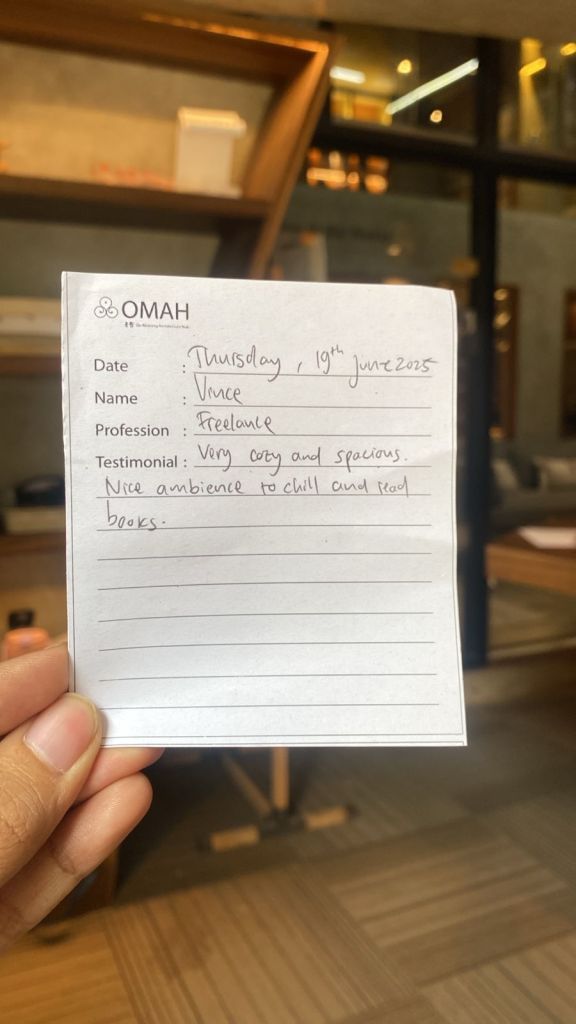 OMAH
Date : Thursday, 19th June 2025
Name : Vince
Profession : Freelance
Testimonial : Very cozy and spacious.
Nice ambience to chill and read
books.